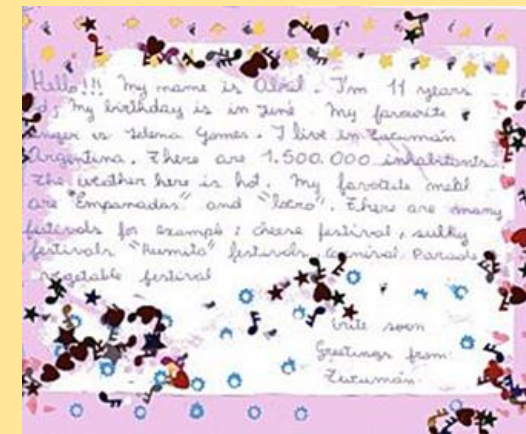 Hello!!! My name is Abril. I'm 11 years
d, my birthday is in June. My favourite
inger is Selena Gomes. I live in Tucumán
Argentina. There are 1.500.000 inhabitants.
The weather here is hot. My favotite meal
are "Empanadas" and "locro". There are many
festivals for example: cheese festival, sulky
festivals "Humita" festivals, Carnival Parade
vegetable festival
Write soon
Greetings from:
Tucumán.